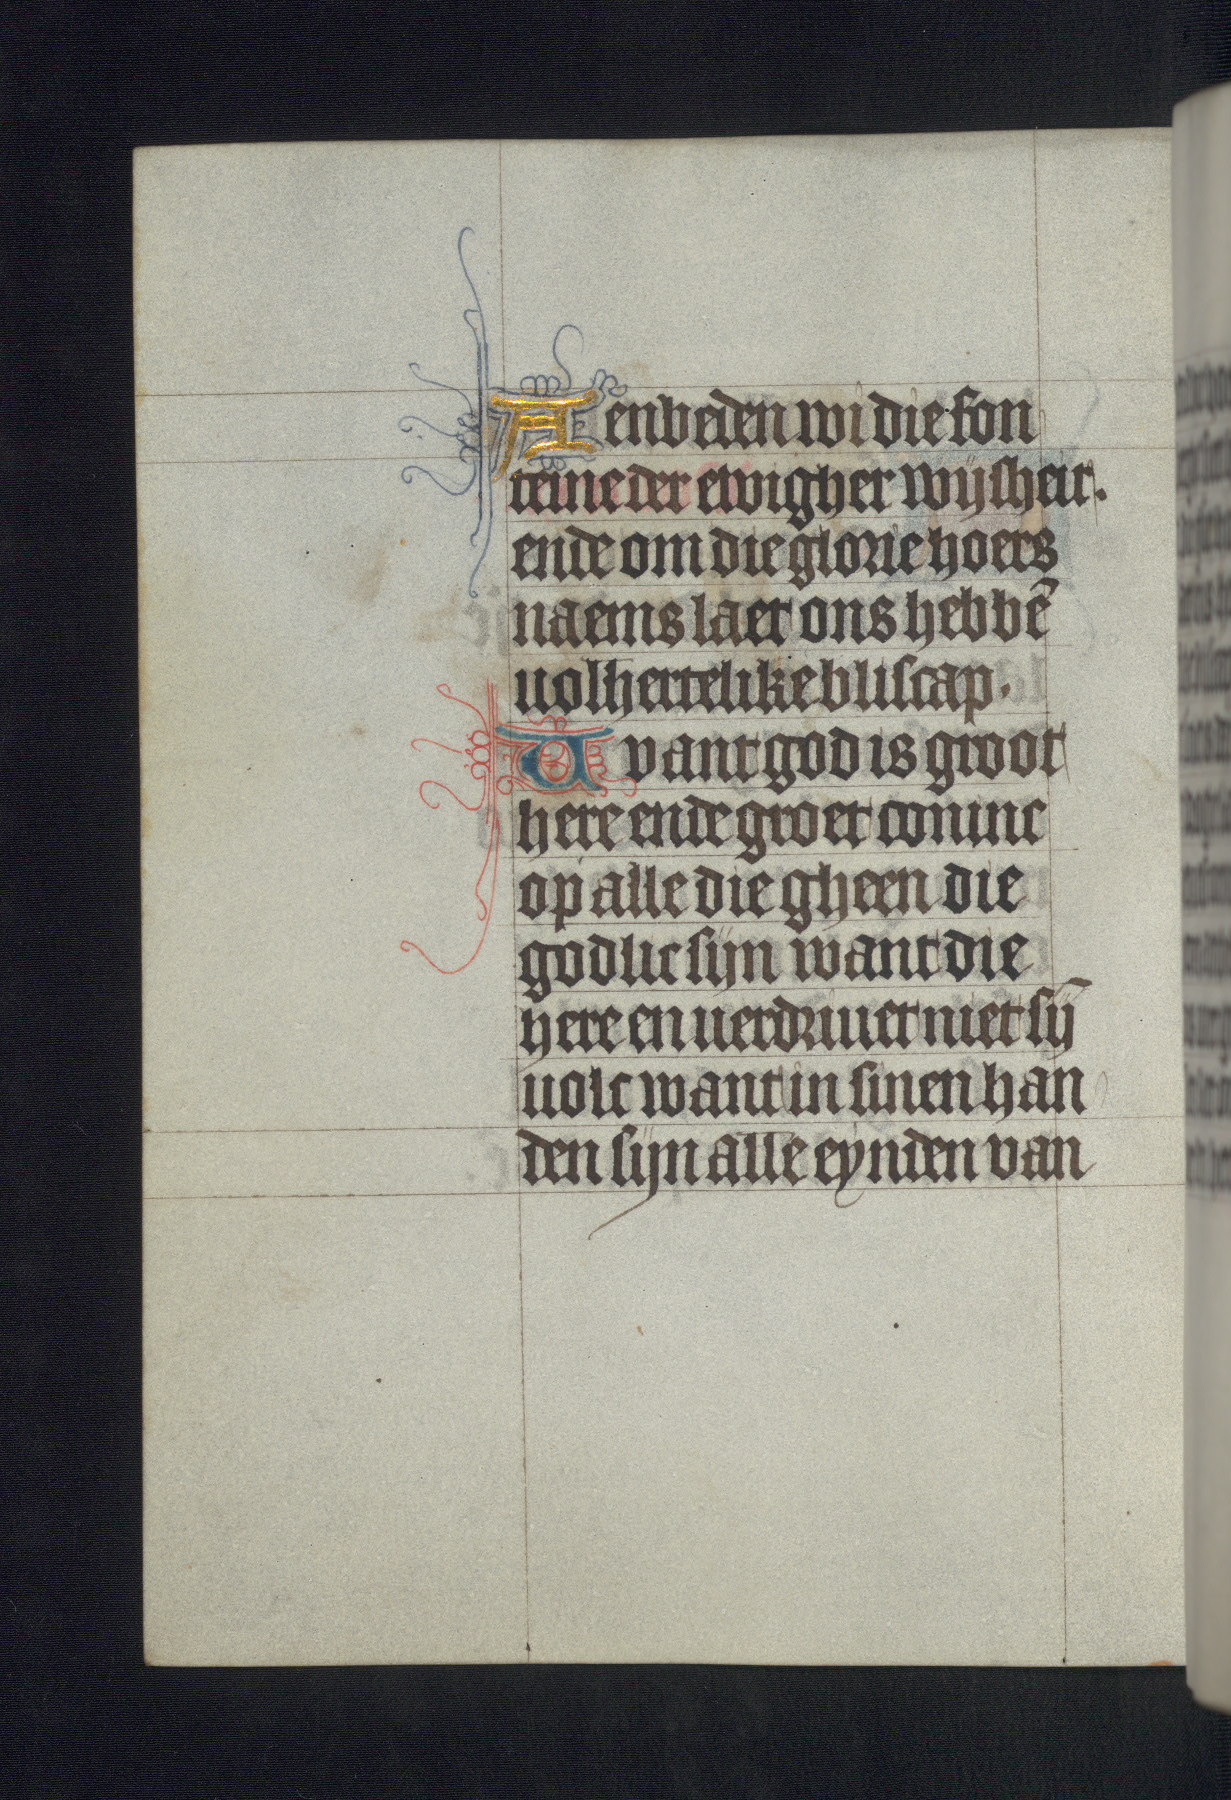 Aenbeden wi die fon
teine der ewigher wijsheit.
ende om die glorie hoers
naems laet ons hebbē
uolhertelike bliscap.
Want god is groot
here ende groet coninc
op alle die gheen die
godlic sijn want die
here en uerdriuet niet sij̄
uolc want in sinen han
den sijn alle eynden van